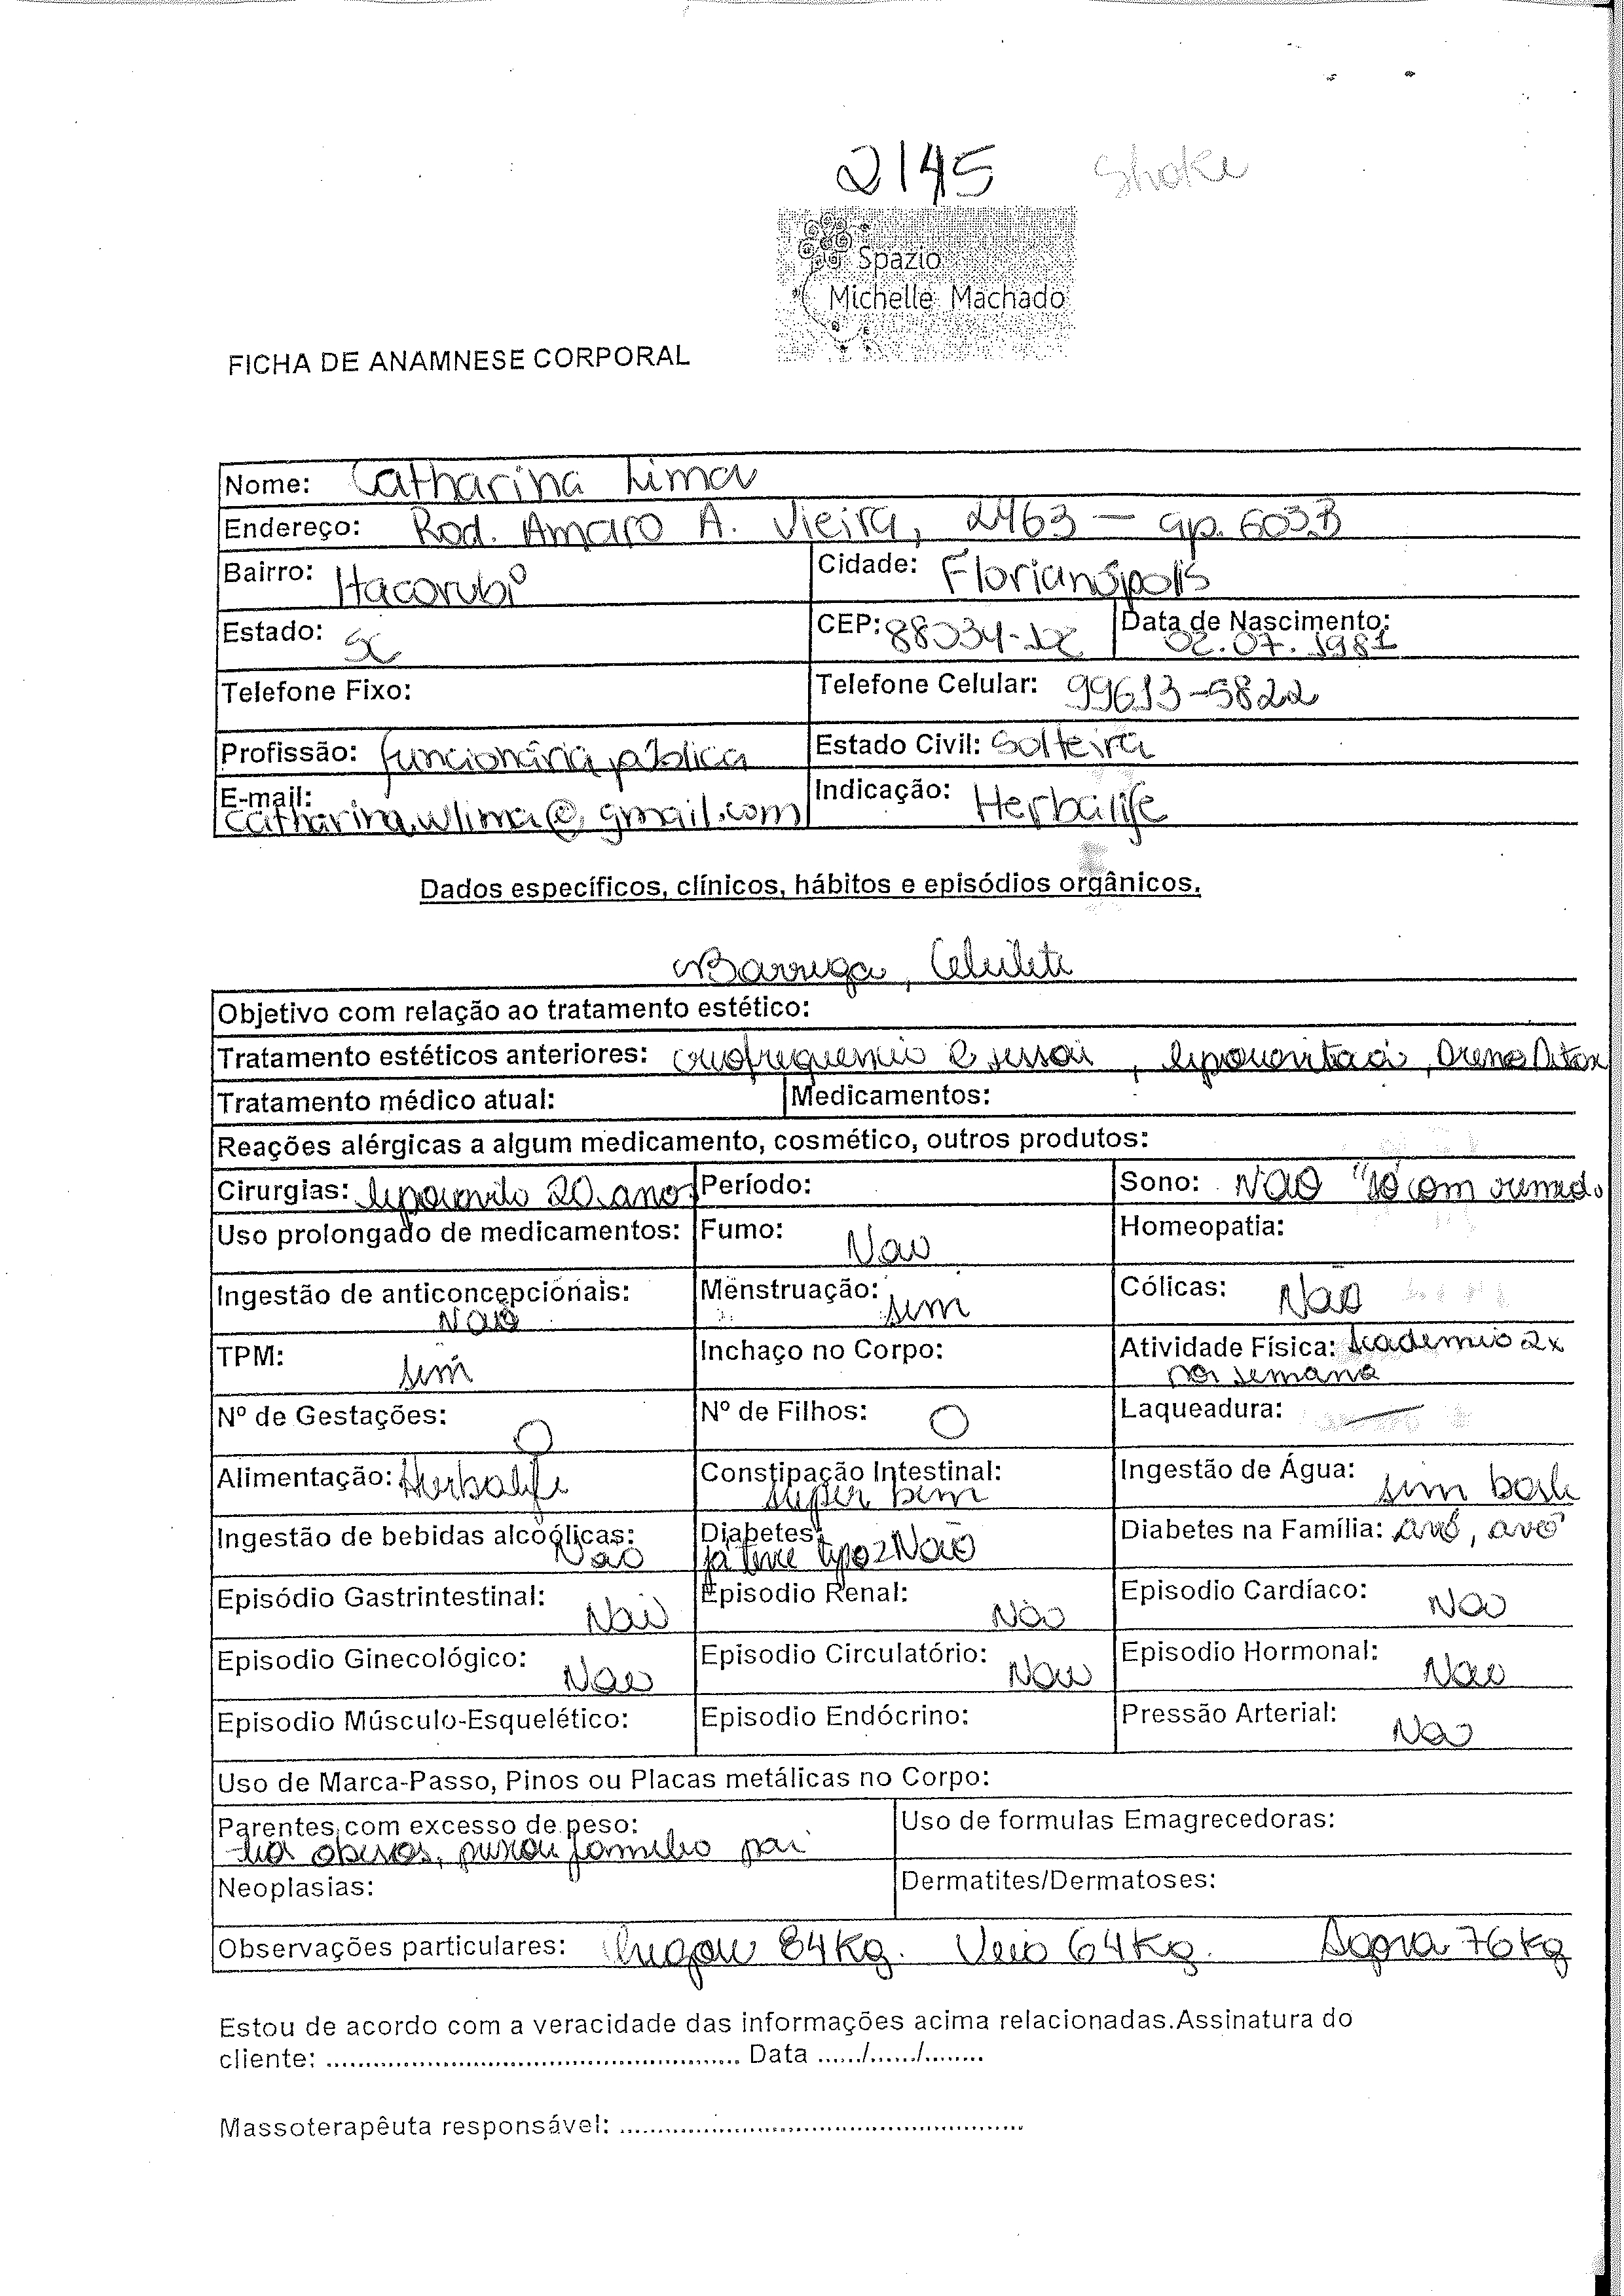 2145 Shake
Spazio
Michelle Machado
FICHA DE ANAMNESE CORPORAL
Nome: Catharina Lima
Endereço: Rod. Amaro A. Vieira, 2463 — ap. 603B
Bairro: Itacorubi Cidade: Florianópolis
Estado: SC CEP: Data de Nascimento: 02.07.1981
Telefone Fixo: Telefone Celular: 99613-5822
Profissão: funcionária pública Estado Civil: Solteira
E-mail: catharina.wlima@gmail.com Indicação: Herbalife
Dados específicos, clínicos, hábitos e episódios orgânicos.
Barriga, Celulite
Objetivo com relação ao tratamento estético:
Tratamento estéticos anteriores: 2 , , Dreno Detox
Tratamento médico atual: Medicamentos:
Reações alérgicas a algum medicamento, cosmético, outros produtos:
Cirurgias: 20 anos Período: Sono: NÃO "só com remedo
Uso prolongado de medicamentos: Fumo: Nao Homeopatia:
Ingestão de anticoncepcionais: Não Menstruação: sim Cólicas: Não
TPM: sim Inchaço no Corpo: Atividade Física: Academia 2x
por semana
Nº de Gestações: 0 Nº de Filhos: 0 Laqueadura: —
Alimentação: Herbalife Constipação Intestinal: super bem Ingestão de Água: sim
Ingestão de bebidas alcoólicas: Não Diabetes: já teve tipo 2 Não Diabetes na Família: avó, avô
Episódio Gastrintestinal: Não Episodio Renal: Não Episodio Cardíaco: Não
Episodio Ginecológico: Nao Episodio Circulatório: Nao Episodio Hormonal: Nao
Episodio Músculo-Esquelético: Episodio Endócrino: Pressão Arterial: Não
Uso de Marca-Passo, Pinos ou Placas metálicas no Corpo:
Parentes com excesso de peso: Uso de formulas Emagrecedoras:
tia obesas, puxou familia pai
Neoplasias: Dermatites/Dermatoses:
Observações particulares: Chegou 84Kg. Veio 64Kg. Agora 76kg
Estou de acordo com a veracidade das informações acima relacionadas.Assinatura do
cliente: ..................................................... Data ....../....../........
Massoterapêuta responsável: ....................................................